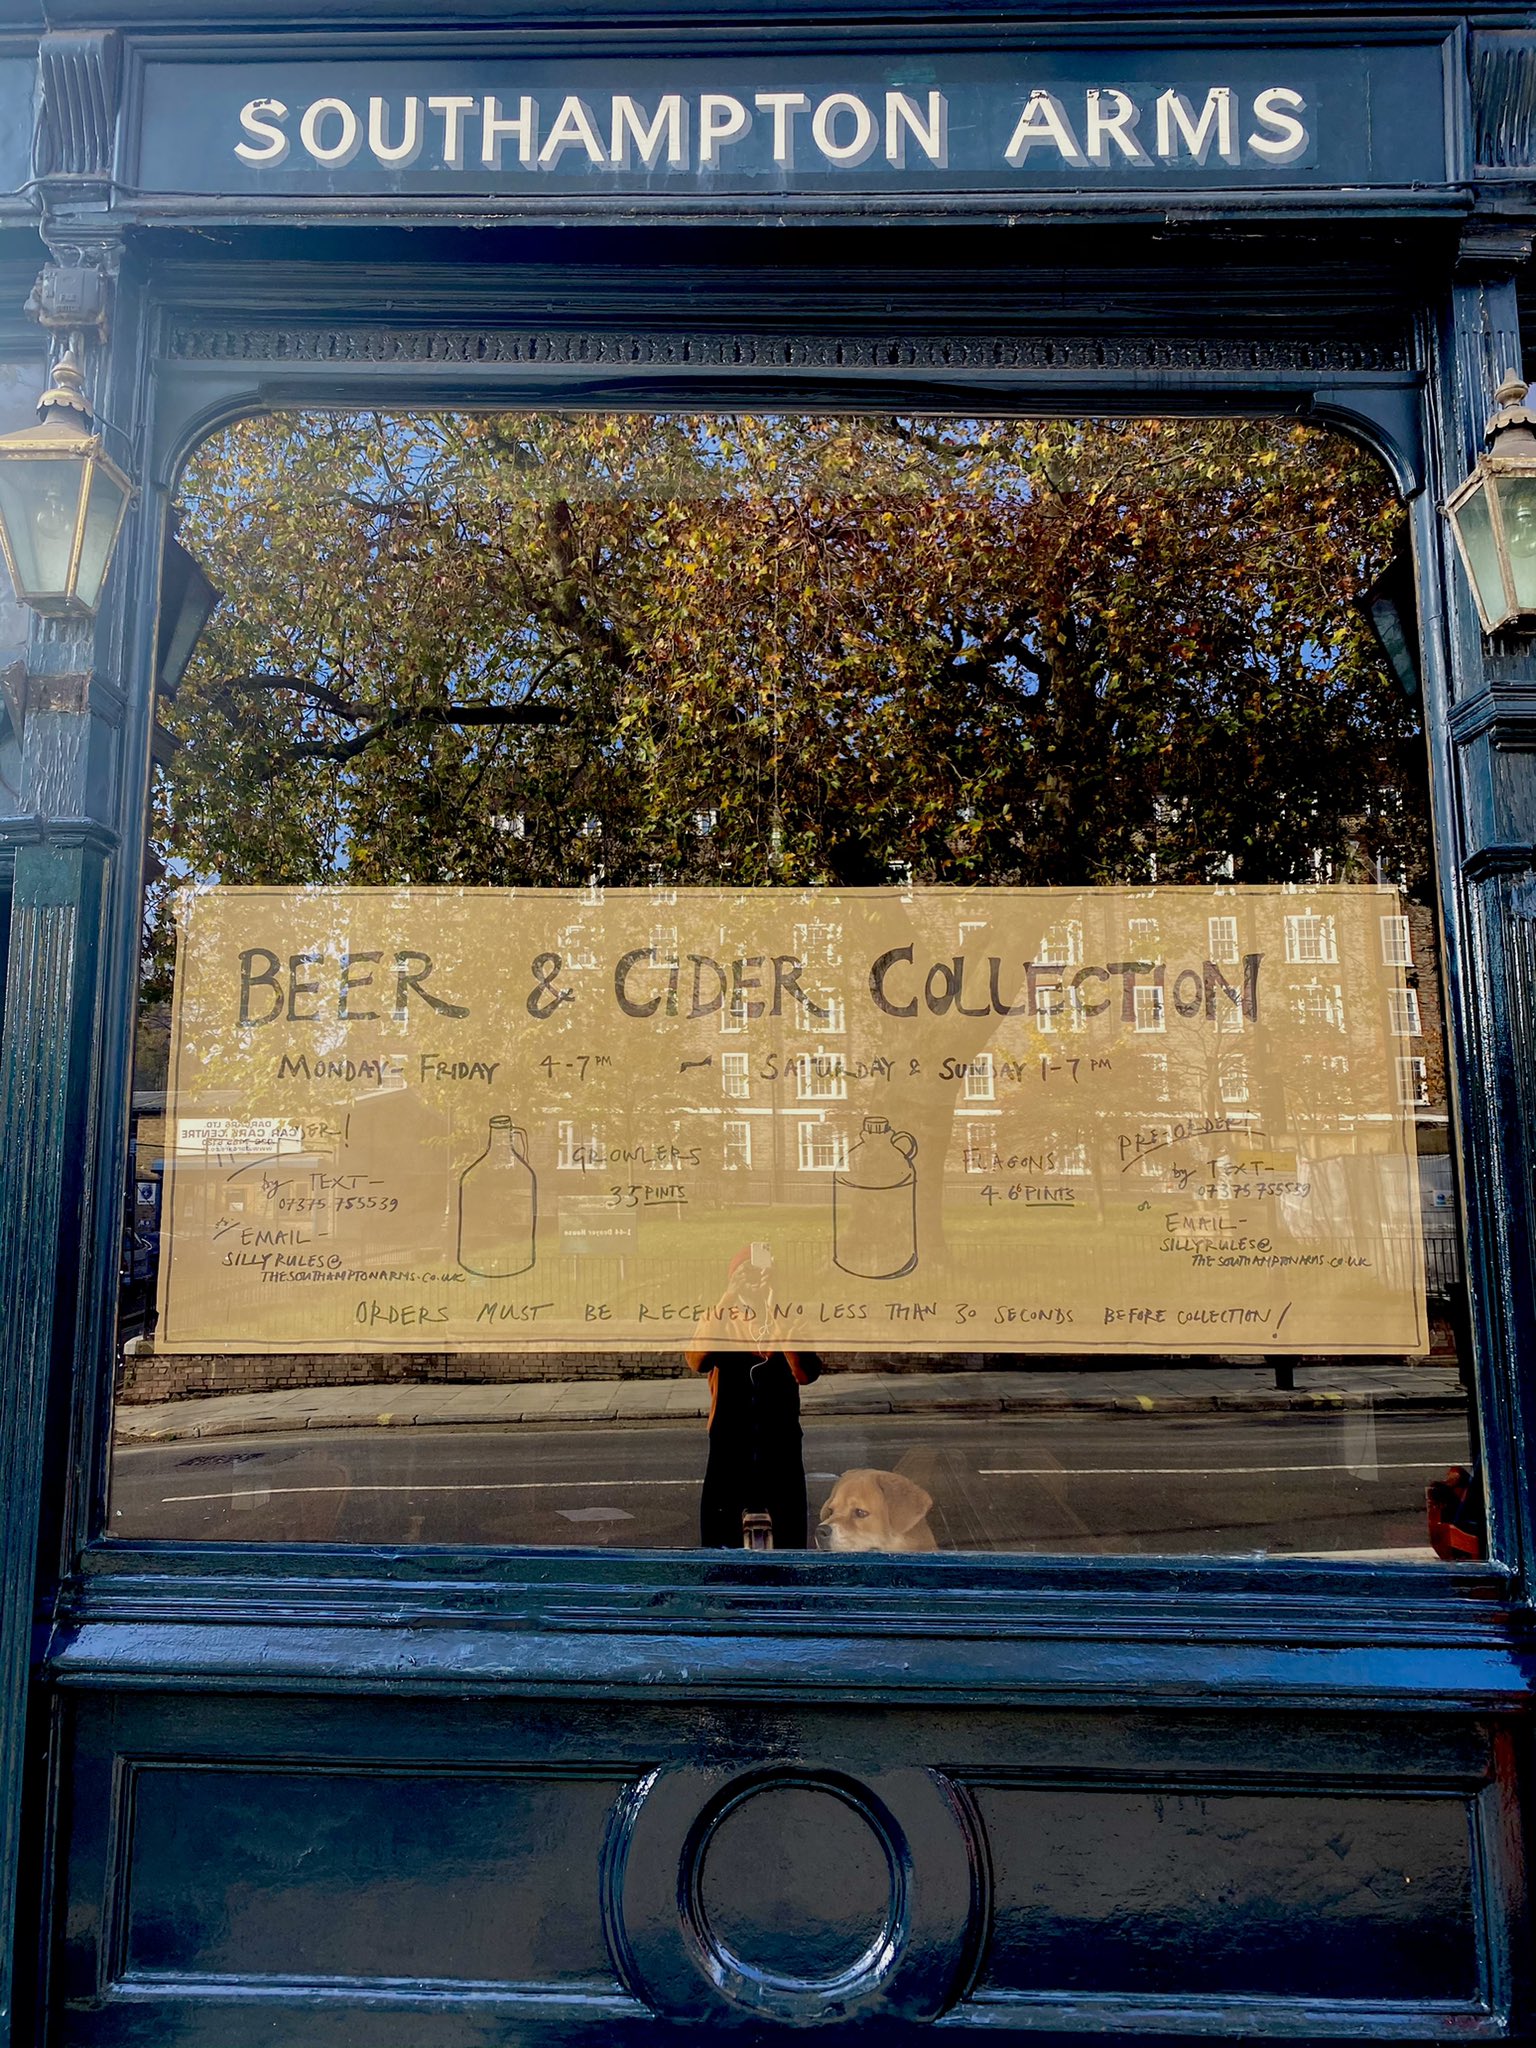 SOUTHAMPTON ARMS
BEER & CIDER COLLECTION
MONDAY - FRIDAY 4-7PM ~ SATURDAY & SUNDAY 1-7PM
by TEXT-
07375 755539
or EMAIL -
SILLYRULES@
THESOUTHAMPTONARMS.CO.UK
GROWLERS
35 PINTS
FLAGONS
4.6 PINTS
PRE-ORDER!
by TEXT-
07375 755539
or EMAIL-
SILLYRULES@
THESOUTHAMPTONARMS.CO.UK
ORDERS MUST BE RECEIVED NO LESS THAN 30 SECONDS BEFORE COLLECTION!
CAR CARE CENTRE
1-44 Denyer House